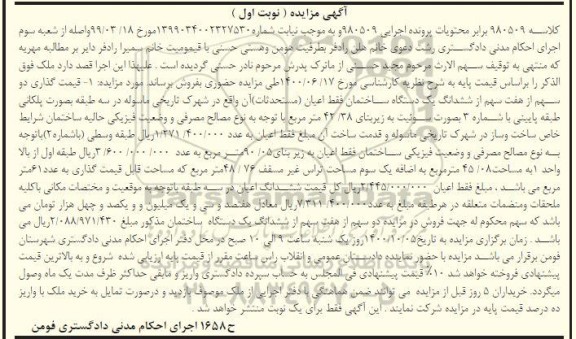 آگهی مزایده ( نوبت اول )
کلاسه ۹۸۰۵۰۹ برابر محتویات پرونده اجرایی ۹۸۰۵۰۹و به موجب نیابت شماره۱۳۹۹۰۳۴۰۰۲۲۲۷۵۳۰مورخ ۹۹/۰۳/۱۸واصله از شعبه سوم
اجرای احکام مدنی دادگستری رشت دعوی خانم هلن رادفر بطرفیت مومن وهستی حسنی با قیمومیت خانم سمیرا رادفر دایر بر مطالبه مهریه
که منتهی به توقیف سهم الارث مرحوم مجید حسنی از ماترک پدرش مرحوم نادر حسنی گردیده است . علیهذا این اجرا قصد دارد ملک فوق
الذکر را براساس قیمت پایه به شرح نظریه کارشناسی مورخ ۱۴۰۰/۰۶/۱۷طی مزایده حضوری بفروش برساند. مورد مزایده: ۱- قیمت گذاری دو
سهم از هفت سهم از ششدانگ یک دستگاه ساختمان فقط اعیان (مستحدثات)آن واقع در شهرک تاریخی ماسوله در سه طبقه بصورت پلکانی
طبقه پایینی با شماره ۳ بصورت سوئیت به زیربنای ۴۲/۳۸ متر مربع با توجه به نوع مصالح مصرفی و وضعیت فیزیکی حالیه ساختمان شرایط
خاص ساخت وساز در شهرک تاریخی ماسوله و قدمت ساخت آن مبلغ فقط اعیان به عدد ۱/۲۷۱/۴۰۰/۰۰۰ریال طبقه وسطی (باشماره۲)باتوجه
به نوع مصالح مصرفی و وضعیت فیزیکی ساختمان فقط اعیان به زیر بنای۹۰/۰۵متر مربع به عدد ۳/۶۰۰/۰۰۰/۰۰۰ ریال طبقه اول از بالا
واحد ۱به مساحت۴۵/۰۸ مترمربع به اضافه یک سوم مساحت تراس غیر مسقف ۴۸/۷۶متر مربع که مساحت قابل قیمت گذاری به عدد۶۱متر
مربع می باشد ، مبلغ فقط اعیان ۲/۴۴۰/۰۰۰/۰۰۰ریال کل قیمت ششدانگ اعیان در سه طبقه باتوجه به موقعیت و مختصات مکانی باکلیه
ملحقات ومنضمات متعلقه در هرطبقه مبلغ به عدد۷/۳۱۱/۴۰۰/۰۰۰ریال معادل هفتصد وسی و یک میلیون و و یکصد و چهل هزار تومان می
باشد که سهم محکوم له جهت فروش در مزایده دو سهم از هفت سهم از ششدانگ یک دستگاه ساختمان مذکور مبلغ ۲/۰۸۸/۹۷۱/۴۳۰ریال می
باشد. زمان برگزاری مزایده به تاریخ۱۴۰۰/۱۰/۰۵روز یک شنبه ساعت ۹ الی ۱۰ صبح در محل دفتر اجرای احکام مدنی دادگستری شهرستان
فومن برقرار می باشد مزایده با حضور نماینده دادستان عمومی و انقلاب راس ساعت مقرر از قیمت پایه ارزیابی شده شروع و به بالاترین قیمت
پیشنهادی فروخته خواهد شد ۱۰٪ قیمت پیشنهادی فی المجلس به حساب سپرده دادگستری واریز و مابقی حداکثر ظرف مدت یک ماه وصول
میگردد. خریداران ۵ روز قبل از مزایده می توانند ضمن هماهنگی با دفتر اجرایی از ملک موصوف بازدید و درصورت تمایل به خرید ملک با واریز
ده درصد قیمت پایه در مزایده شرکت نمایند . این آگهی فقط برای یک نوبت منتشر خواهد شد .
ح۱۶۵۸ اجرای احکام مدنی دادگستری فومن